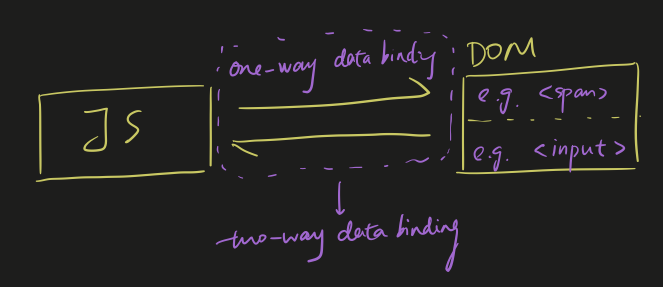 one-way data bindg
DOM
JS
e.g. <span>
e.g. <input>
two-way data binding